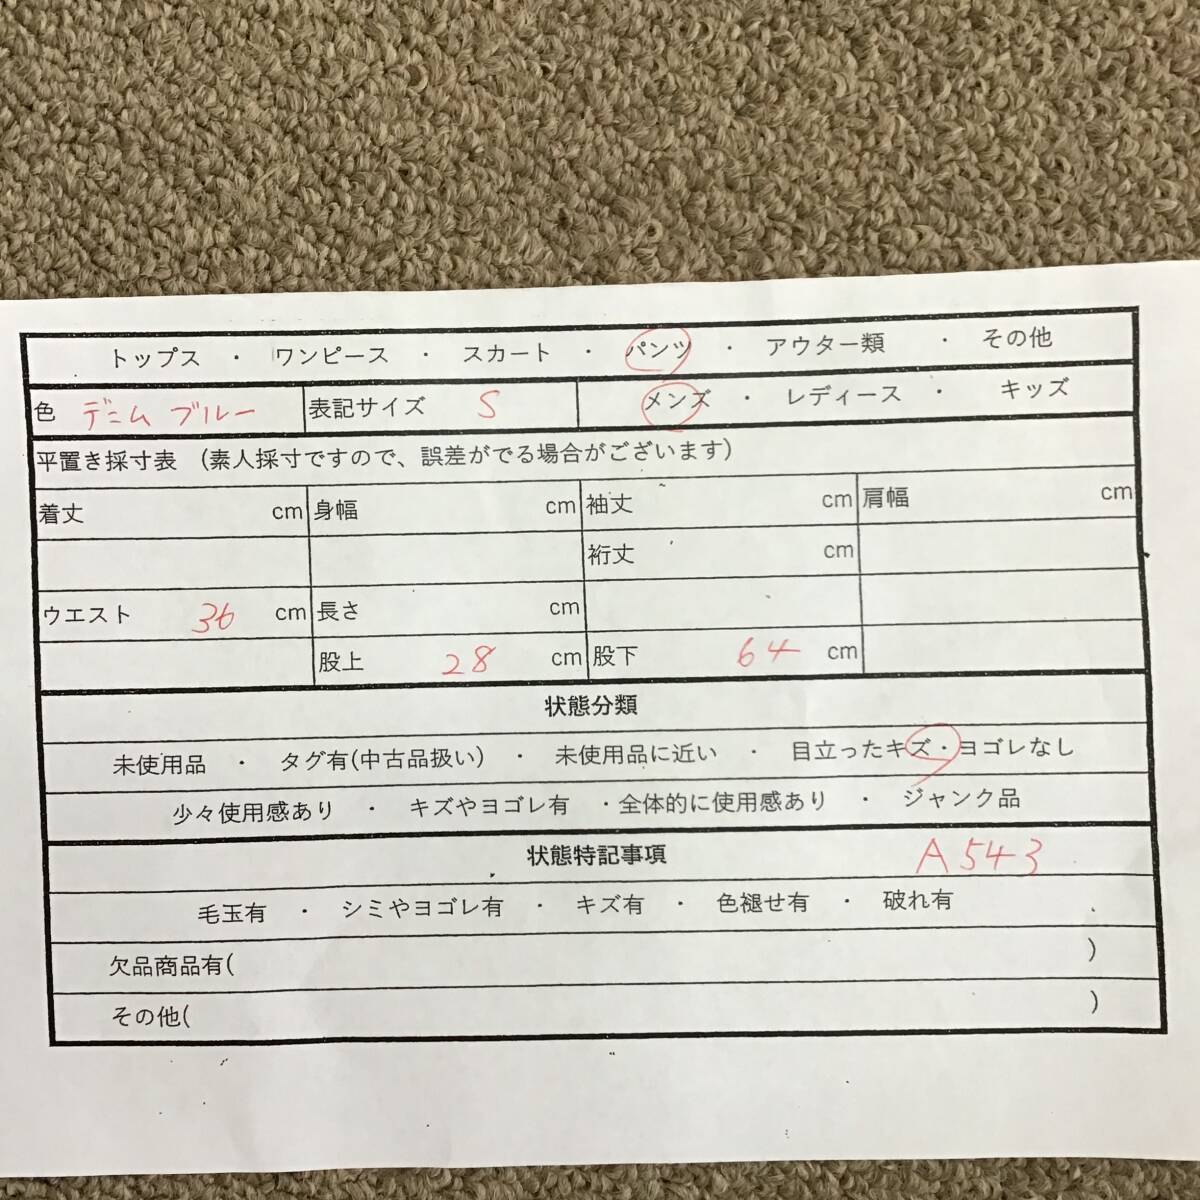 トップス ・ ワンピース ・ スカート ・ パンツ ・ アウター類 ・ その他
色 デニム ブルー 表記サイズ S メンズ ・ レディース ・ キッズ
平置き採寸表 (素人採寸ですので、誤差がでる場合がございます)
着丈 cm 身幅 cm 袖丈 cm 肩幅 cm
裄丈 cm
ウエスト 36 cm 長さ cm
股上 28 cm 股下 64 cm
状態分類
未使用品 ・ タグ有(中古品扱い) ・ 未使用品に近い ・ 目立ったキズ・ヨゴレなし
少々使用感あり ・ キズやヨゴレ有 ・全体的に使用感あり ・ ジャンク品
状態特記事項 A543
毛玉有 ・ シミやヨゴレ有 ・ キズ有 ・ 色褪せ有 ・ 破れ有
欠品商品有( )
その他( )